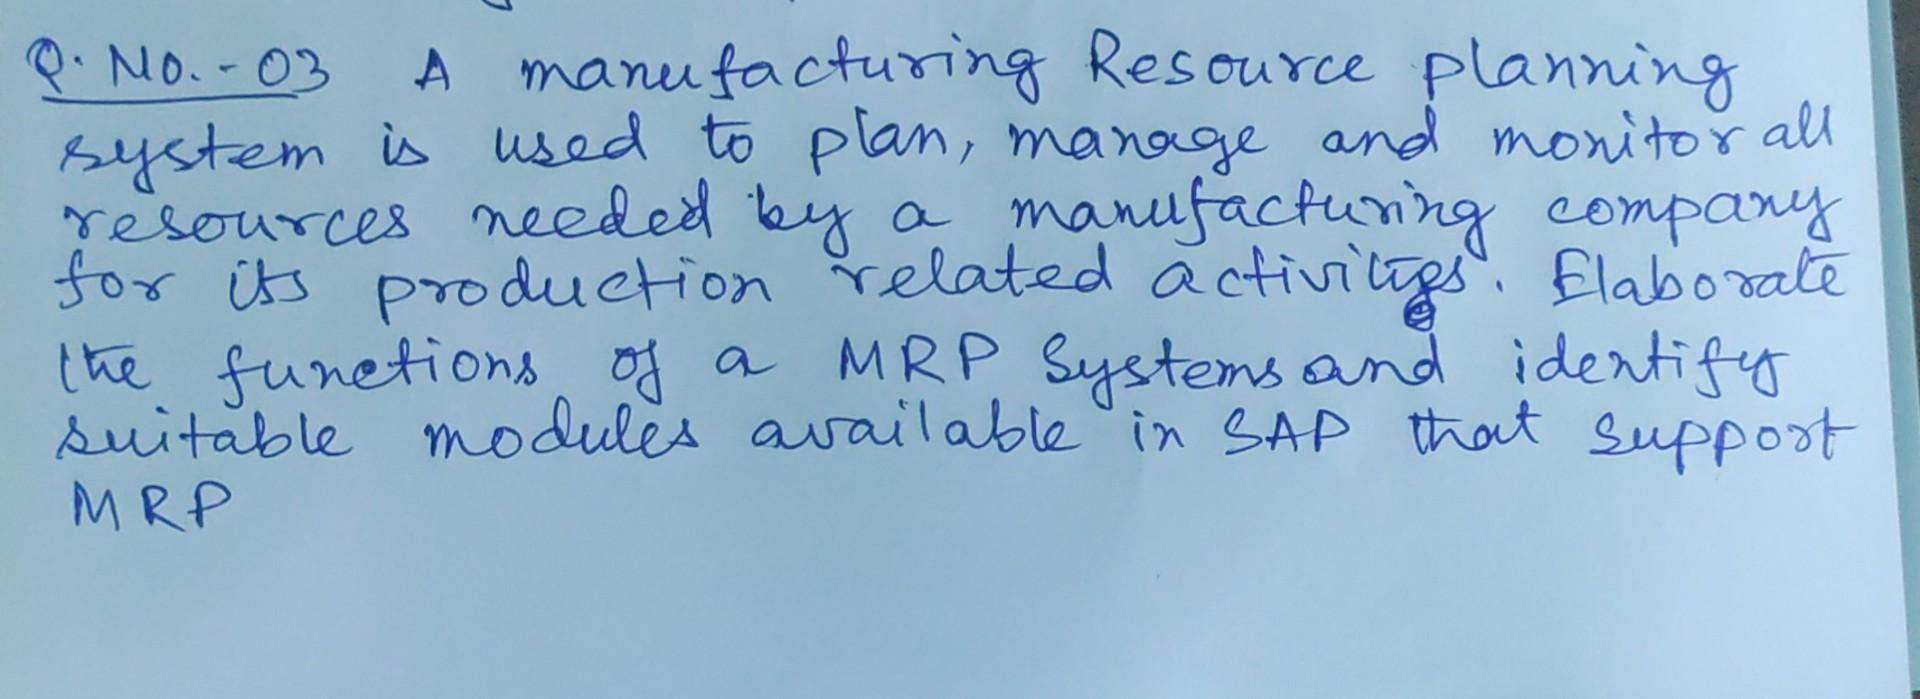 Q. No. - 03 A manufacturing Resource planning
system is used to plan, manage and monitor all
resources needed by a manufacturing company
for its production related activities. Elaborate
the functions of a MRP Systems and identify
suitable modules available in SAP that support
MRP